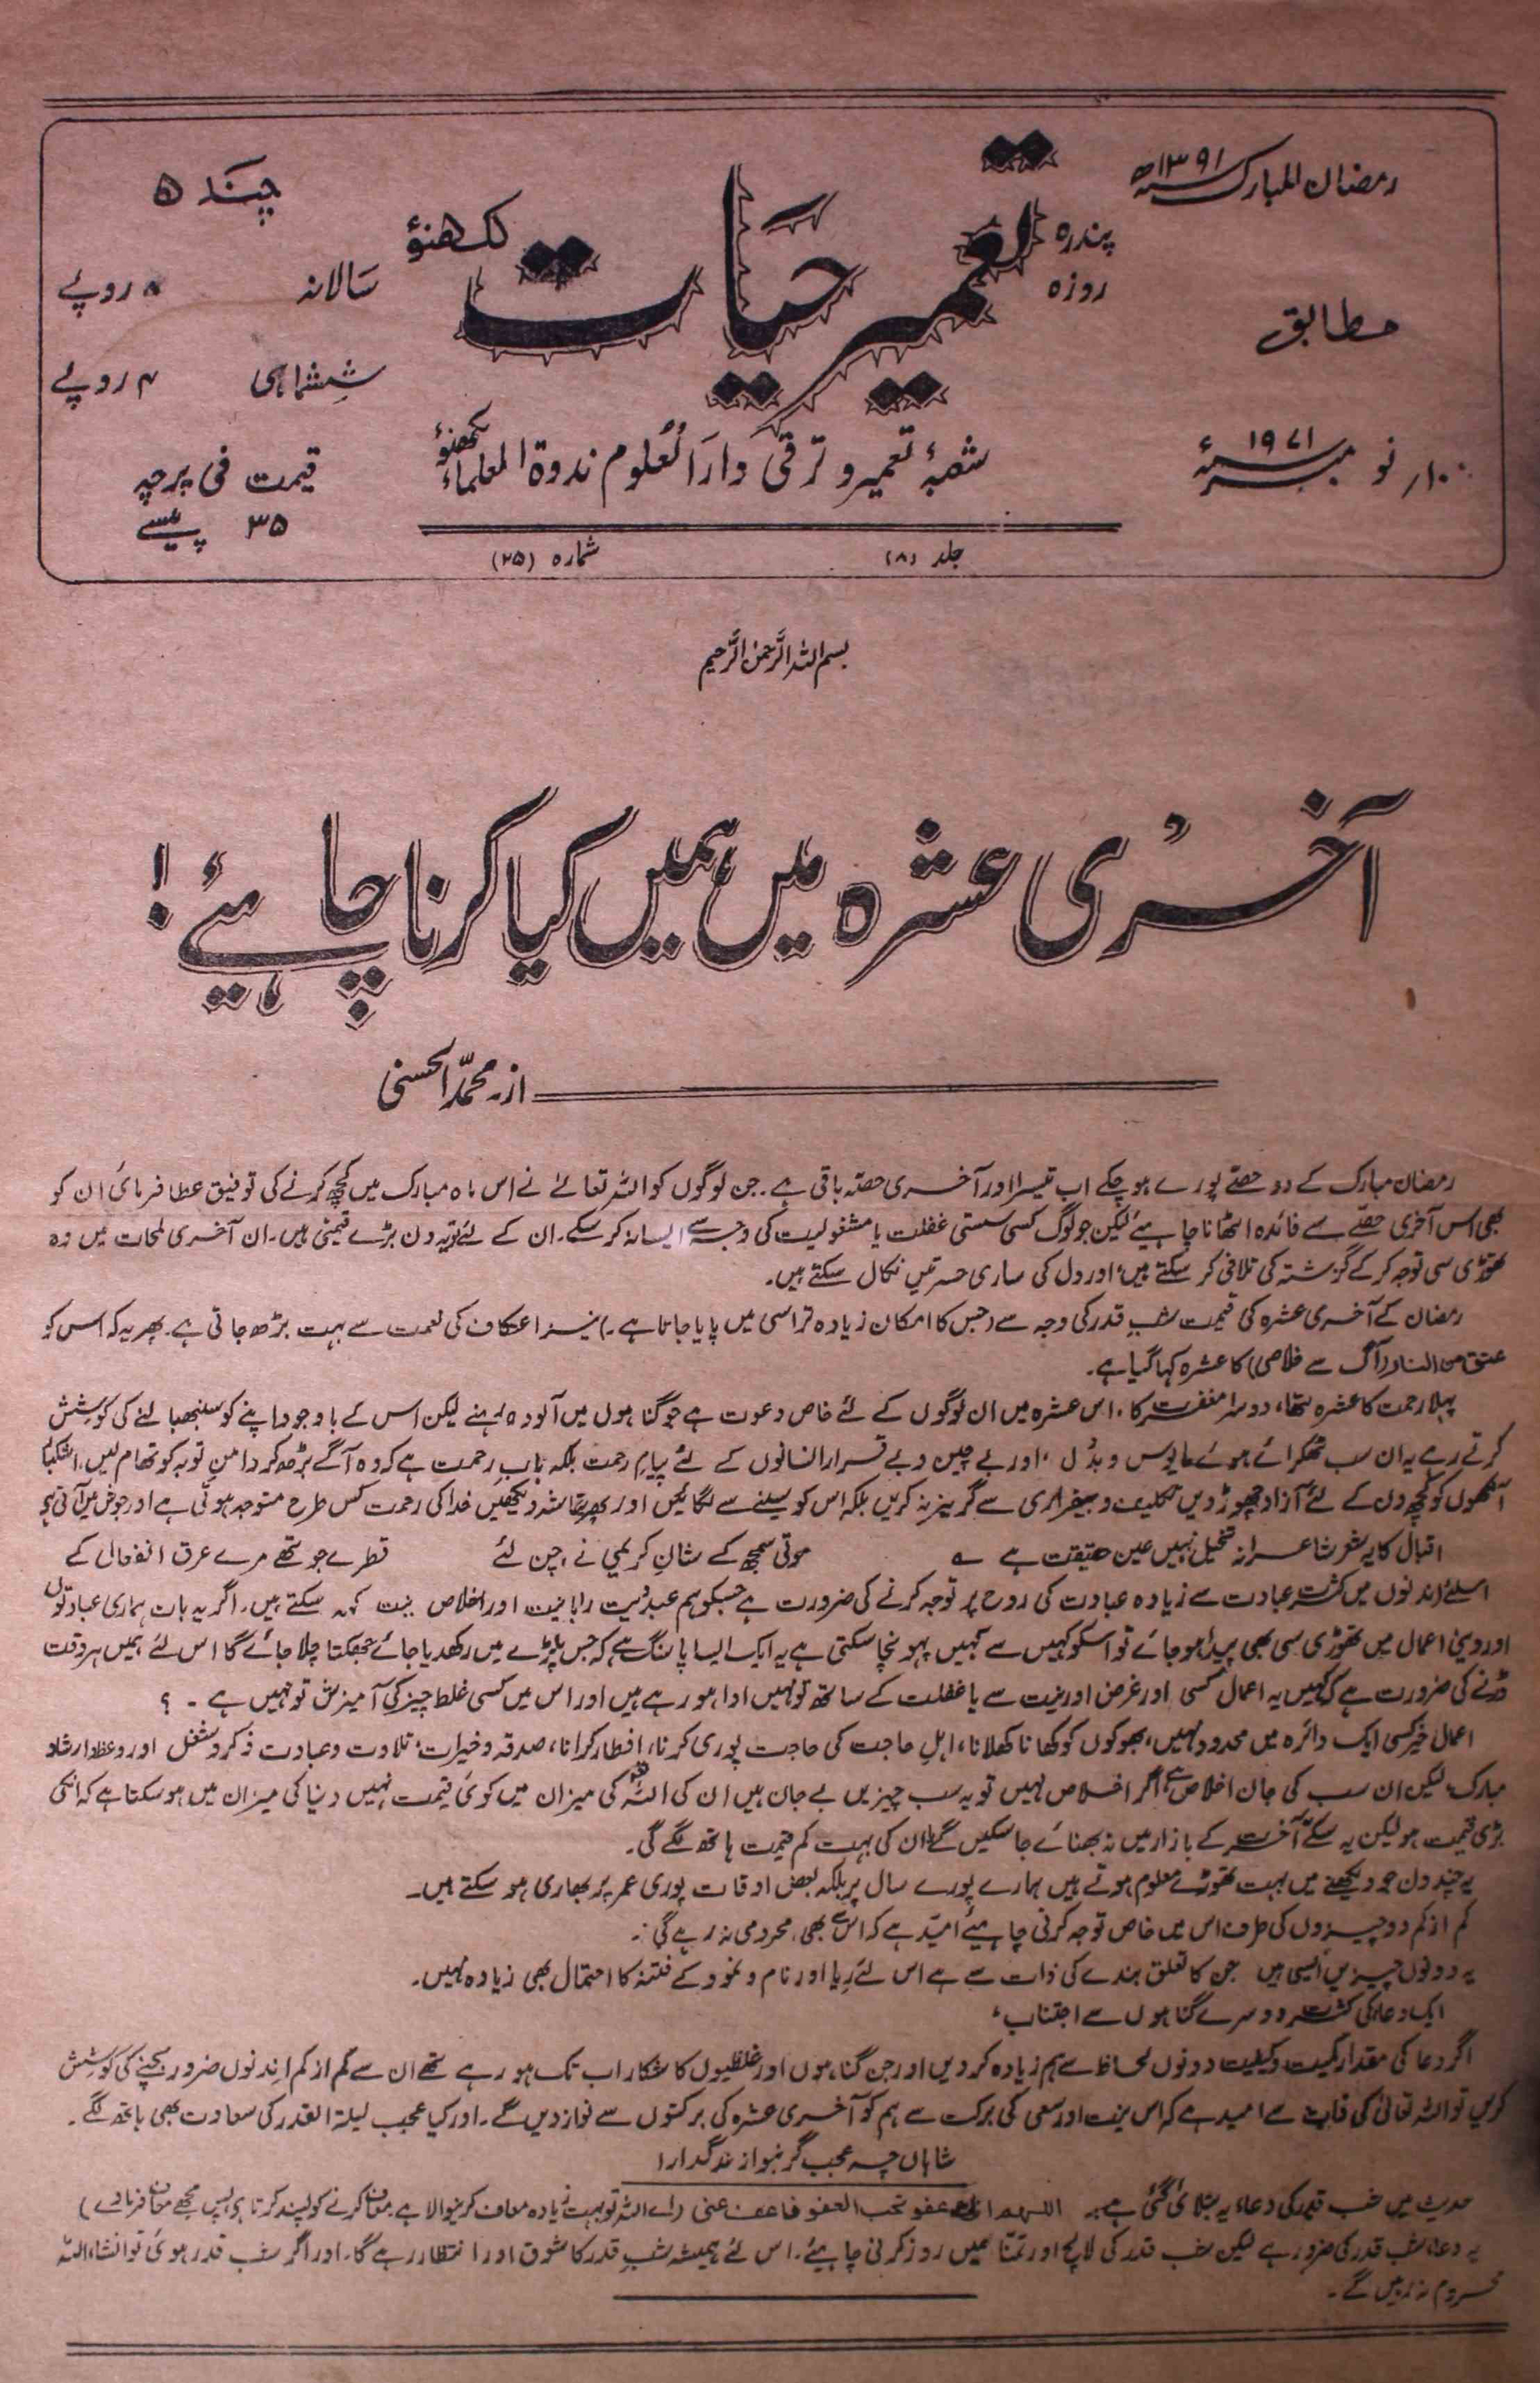 رمضان المبارک سنہ ۱۳۹۱ھ
مطابق
۱۰ر نومبر سنہ ۱۹۷۱ء
پندرہ روزہ
تعمیر حیات
لکھنؤ
شعبۂ تعمیر و ترقی دارالعلوم ندوۃ العلماء لکھنؤ
جلد (۸) شمارہ (۲۵)
چندہ
سالانہ ۸ روپئے
ششماہی ۴ روپئے
قیمت فی پرچہ
۳۵ پیسے
بسم اللہ الرحمن الرحیم
آخری عشرہ میں ہمیں کیا کرنا چاہیئے!
از۔ محمد الحسنی
رمضان مبارک کے دو حصے پورے ہو چکے اب تیسرا اور آخری حصّہ باقی ہے۔ جن لوگوں کو اللہ تعالےٰ نے اس ماہ مبارک میں کچھ کرنے کی توفیق عطا فرمائی ان کو
بھی اس آخری حصّے سے فائدہ اٹھانا چاہیئے لیکن جو لوگ کسی سستی غفلت یا مشغولیت کی وجہ سے ایسا نہ کر سکے۔ ان کے لئے تو یہ دن بڑے قیمتی ہیں۔ ان آخری لمحات میں وہ
تھوڑی سی توجہ کر کے گزشتہ کی تلافی کر سکتے ہیں، اور دل کی ساری حسرتیں نکال سکتے ہیں۔
رمضان کے آخری عشرہ کی قیمت شب قدر کی وجہ سے (جس کا امکان زیادہ تر اسی میں پایا جاتا ہے۔) نیز اعتکاف کی نعمت سے بہت بڑھ جاتی ہے۔ پھر یہ کہ اس کو
عتق من النار (آگ سے خلاصی) کا عشرہ کہا گیا ہے۔
پہلا رحمت کا عشرہ تھا، دوسرا مغفرت کا، اس عشرہ میں ان لوگوں کے لئے خاص دعوت ہے جو گناہوں میں آلودہ رہنے لیکن اس کے باوجود اپنے کو سنبھالنے کی کوشش
کرتے رہے یہ ان سب ٹھکرائے ہوئے مایوس و بددل، اور بے چین و بے قرار انسانوں کے لئے پیام رحمت بلکہ باب رحمت ہے کہ وہ آگے بڑھ کر دامن توبہ کو تھام لیں، اشکبار
آنکھوں کو کچھ دن کے لئے آزاد چھوڑ دیں تکلیف و بیقراری سے گریز نہ کریں بلکہ اس کو سینے سے لگائیں اور پھر تماشہ دیکھیں خدا کی رحمت کس طرح متوجہ ہوتی ہے اور جوش میں آتی ہے
اقبال کا یہ شعر شاعرانہ تخیل نہیں عین حقیقت ہے ؎ موتی سمجھ کے شان کریمی نے چن لئے قطرے جو تھے مرے عرق انفعال کے
اسلئے اندنوں میں کثرت عبادت سے زیادہ عبادت کی روح پر توجہ کرنے کی ضرورت ہے جسکو ہم عبدیت ربانیت اور اخلاص نیت کہہ سکتے ہیں۔ اگر یہ بات ہماری عبادتوں
اور دینی اعمال میں تھوڑی سی بھی پیدا ہو جائے تو اسکو کہیں سے کہیں پہونچا سکتی ہے یہ ایک ایسا پاسنگ ہے کہ جس پلڑے میں رکھدیا جائے جھکتا چلا جائے گا اس لئے ہمیں ہر وقت
ڈرنے کی ضرورت ہے کہ کہیں یہ اعمال کسی اور غرض اور نیت سے یا غفلت کے ساتھ تو نہیں ادا ہو رہے ہیں اور اس میں کسی غلط چیز کی آمیزش تو نہیں ہے۔؟
اعمال خیر کسی ایک دائرہ میں محدود نہیں، بھوکوں کو کھانا کھلانا، اہل حاجت کی حاجت پوری کرنا، افطار کرانا، صدقہ و خیرات، تلاوت و عبادت ذکر و شغل اور وعظ و ارشاد
مبارک، لیکن ان سب کی جان اخلاص ہے، اگر اخلاص نہیں تو یہ سب چیزیں بے جان ہیں ان کی اللہ کی میزان میں کوئی قیمت نہیں دنیا کی میزان میں ہو سکتا ہے کہ انکی
بڑی قیمت ہو لیکن یہ سکے آخرت کے بازار میں نہ بھنائے جا سکیں گے، ان کی بہت کم قیمت ہاتھ لگے گی۔
یہ چند دن جو دیکھنے میں بہت تھوڑے معلوم ہوتے ہیں ہمارے پورے سال پر بلکہ بعض اوقات پوری عمر پر بھاری ہو سکتے ہیں۔
کم از کم دو چیزوں کی طرف اس میں خاص توجہ کرنی چاہیئے امید ہے کہ اس سے بھی محرومی نہ رہے گی۔
یہ دونوں چیزیں ایسی ہیں جن کا تعلق بندے کی ذات سے ہے اس لئے ریا اور نام و نمود کے فتنہ کا احتمال بھی زیادہ نہیں۔
ایک دعا کی کثرت دوسرے گناہوں سے اجتناب،
اگر دعا کی مقدار کمیت و کیفیت دونوں لحاظ سے ہم زیادہ کر دیں اور جن گناہوں اور غلطیوں کا شکار اب تک ہو رہے تھے ان سے کم از کم اندنوں ضرور بچنے کی کوشش
کریں تو اللہ تعالیٰ کی ذات سے امید ہے کہ اس نیت اور سعی کی برکت سے ہم کو آخری عشرہ کی برکتوں سے نواز دیں گے۔ اور کیا عجب لیلۃ القدر کی سعادت بھی ہاتھ لگے۔
شاہاں چہ عجب گر بنوازند گدارا
حدیث میں شب قدر کی دعا یہ بتلائی گئی ہے۔ اللہم انک عفو تحب العفو فاعف عنی (اے اللہ تو بہت زیادہ معاف کرنیوالا ہے معاف کرنے کو پسند کرتا ہے پس مجھے معاف فرما دے)
یہ دعا شب قدر کی ضرور ہے لیکن شب قدر کی لالچ اور تمنا ہمیں روز کرنی چاہیئے۔ اس لئے ہمیشہ شب قدر کا شوق اور انتظار رہے گا۔ اور اگر شب قدر ہوئی تو انشاء اللہ
محروم نہ رہیں گے۔